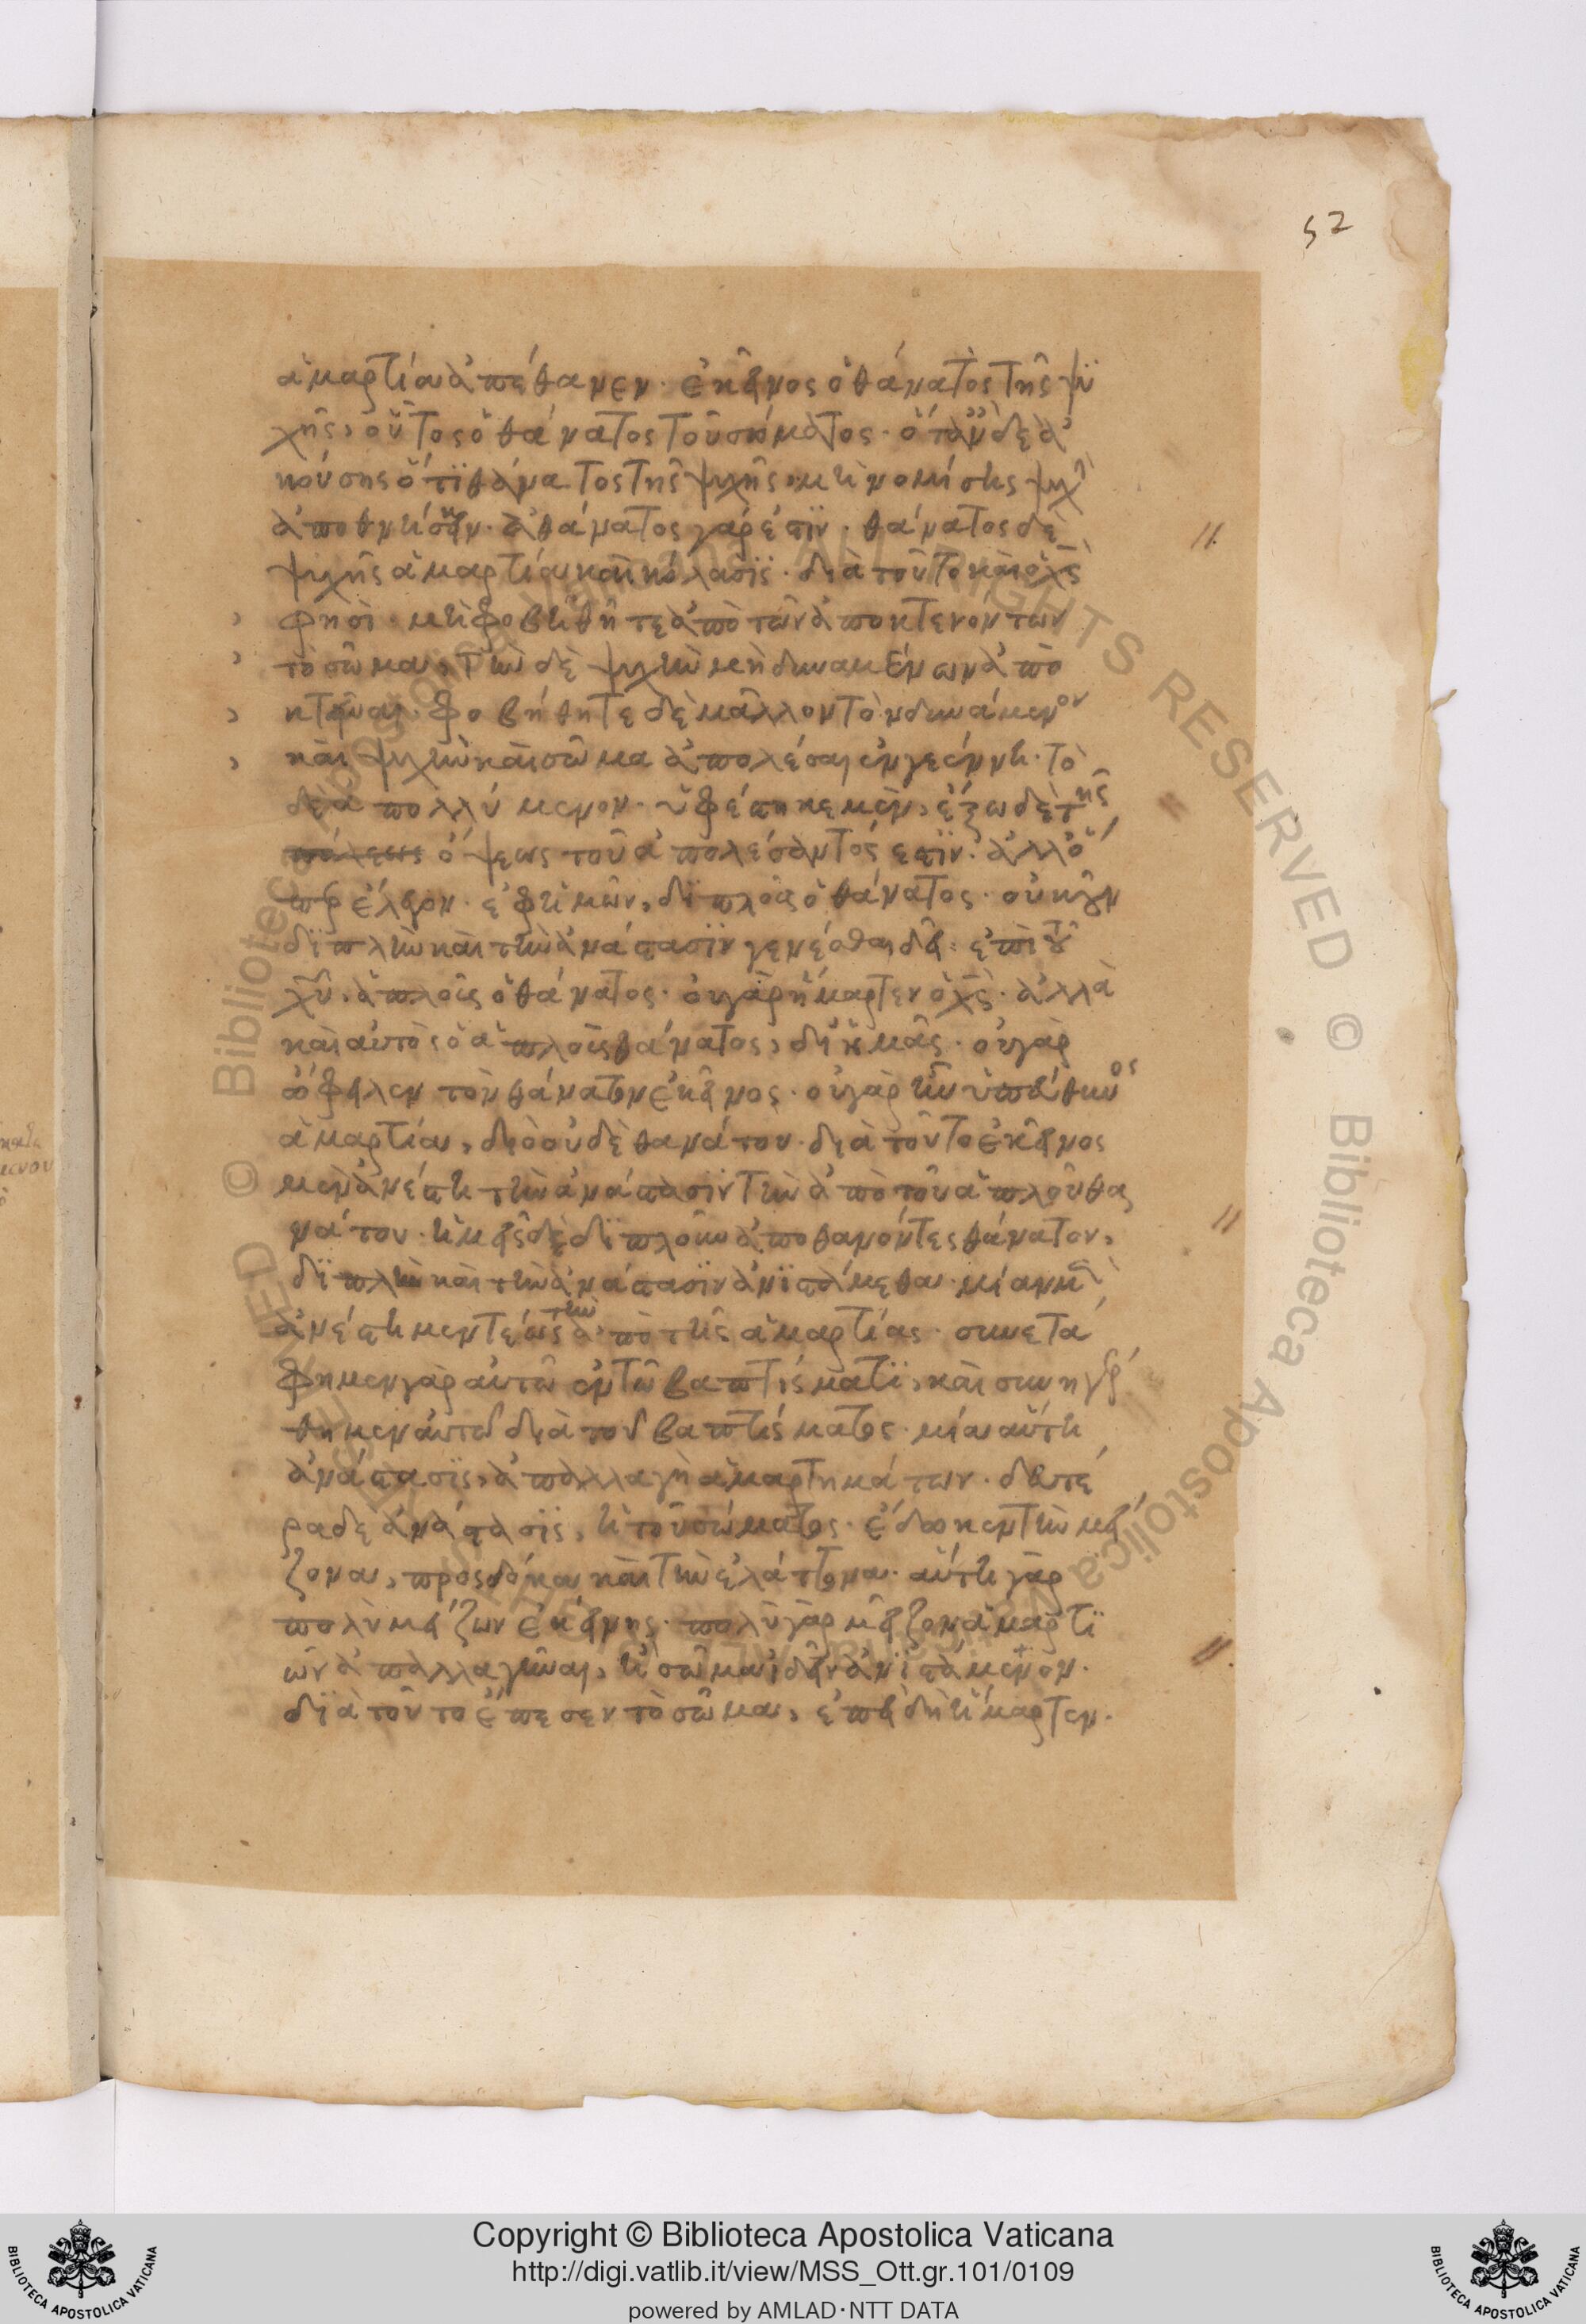 52
ἁμαρτία ἀπέθανεν· ἐκεῖνος ὁ θάνατος τῆς ψυ
χῆς, οὗτος ὁ θάνατος τοῦ σώματος· ὅταν δὲ ἀ
κούσης ὅτι θάνατος τῆς ψυχῆς, μὴ νομίσης ψυχὴ
ἀποθνήσκειν· ἀθάνατος γάρ ἐστιν· θάνατος δὲ
ψυχῆς ἁμαρτία καὶ κόλασις· διὰ τοῦτο καὶ ὁ χς
φησὶ· μὴ φοβηθῆτε ἀπὸ τῶν ἀποκτενόντων
τὸ σῶμα, τὴν δὲ ψυχὴν μὴ δυναμένων ἀπο
κτεῖναι· φοβήθητε δὲ μᾶλλον τὸν δυνάμενον
καὶ ψυχὴν καὶ σῶμα ἀπολέσαι ἐν γεέννη· τὸ
δὲ ἀπολλύμενον· ὑφέστηκε μὲν, ἔξω δὲ τῆς
πόλεως ὄψεως τοῦ ἀπολέσαντός ἐστιν· ἀλλ' ὅ
περ ἔλεγον· ἐφ' ἡμῶν, διπλοῦς ὁ θάνατος· οὐκοῦν
διπλὴν καὶ τὴν ἀνάστασιν γενέσθαι δεῖ· ἐπὶ τοῦ
χυ· ἁπλοῦς ὁ θάνατος· οὐ γὰρ ἥμαρτεν ὁ χς· ἀλλὰ
καὶ αὐτὸς ὁ ἁπλοῦς θάνατος, δι' ἡμᾶς· οὐ γὰρ
ὤφειλεν τὸν θάνατον ἐκεῖνος· οὐ γὰρ ἦν ὑπεύθυνος
ἁμαρτία, διὸ οὐδὲ θανάτου· διὰ τοῦτο ἐκεῖνος
μὲν ἀνέστη τὴν ἀνάστασιν τὴν ἀπὸ τοῦ ἁπλοῦ θα
νάτου· ἡμεῖς δὲ διπλοῦν ἀποθανόντες θάνατον,
διπλὴν καὶ τὴν ἀνάστασιν ἀνιστάμεθα· μίαν μὲν
ἀνέστημεν τέως τὴν ἀπὸ τῆς ἁμαρτίας· συνετά
φημεν γὰρ αὐτῶ ἐν τῶ βαπτίσματι, καὶ συνηγέρ
θημεν αὐτῶ διὰ τοῦ βαπτίσματος· μία αὕτη
ἀνάστασις, ἀπαλλαγὴ ἁμαρτημάτων· δευτέ
ρα δὲ ἀνάστασις, ἡ τοῦ σώματος· ἔδωκεν τὴν μεί
ζονα, προσδόκα καὶ τὴν ἐλάττονα· αὕτη γὰρ
πολὺ μείζων ἐκείνης· πολὺ γὰρ μεῖζον ἁμαρτι
ῶν ἀπαλλαγῆναι, ἢ σῶμα ἰδεῖν ἀνιστάμενον·
διὰ τοῦτο ἔπεσεν τὸ σῶμα, ἐπειδὴ ἥμαρτεν·
Copyright © Biblioteca Apostolica Vaticana
http://digi.vatlib.it/view/MSS_Ott.gr.101/0109
powered by AMLAD·NTT DATA